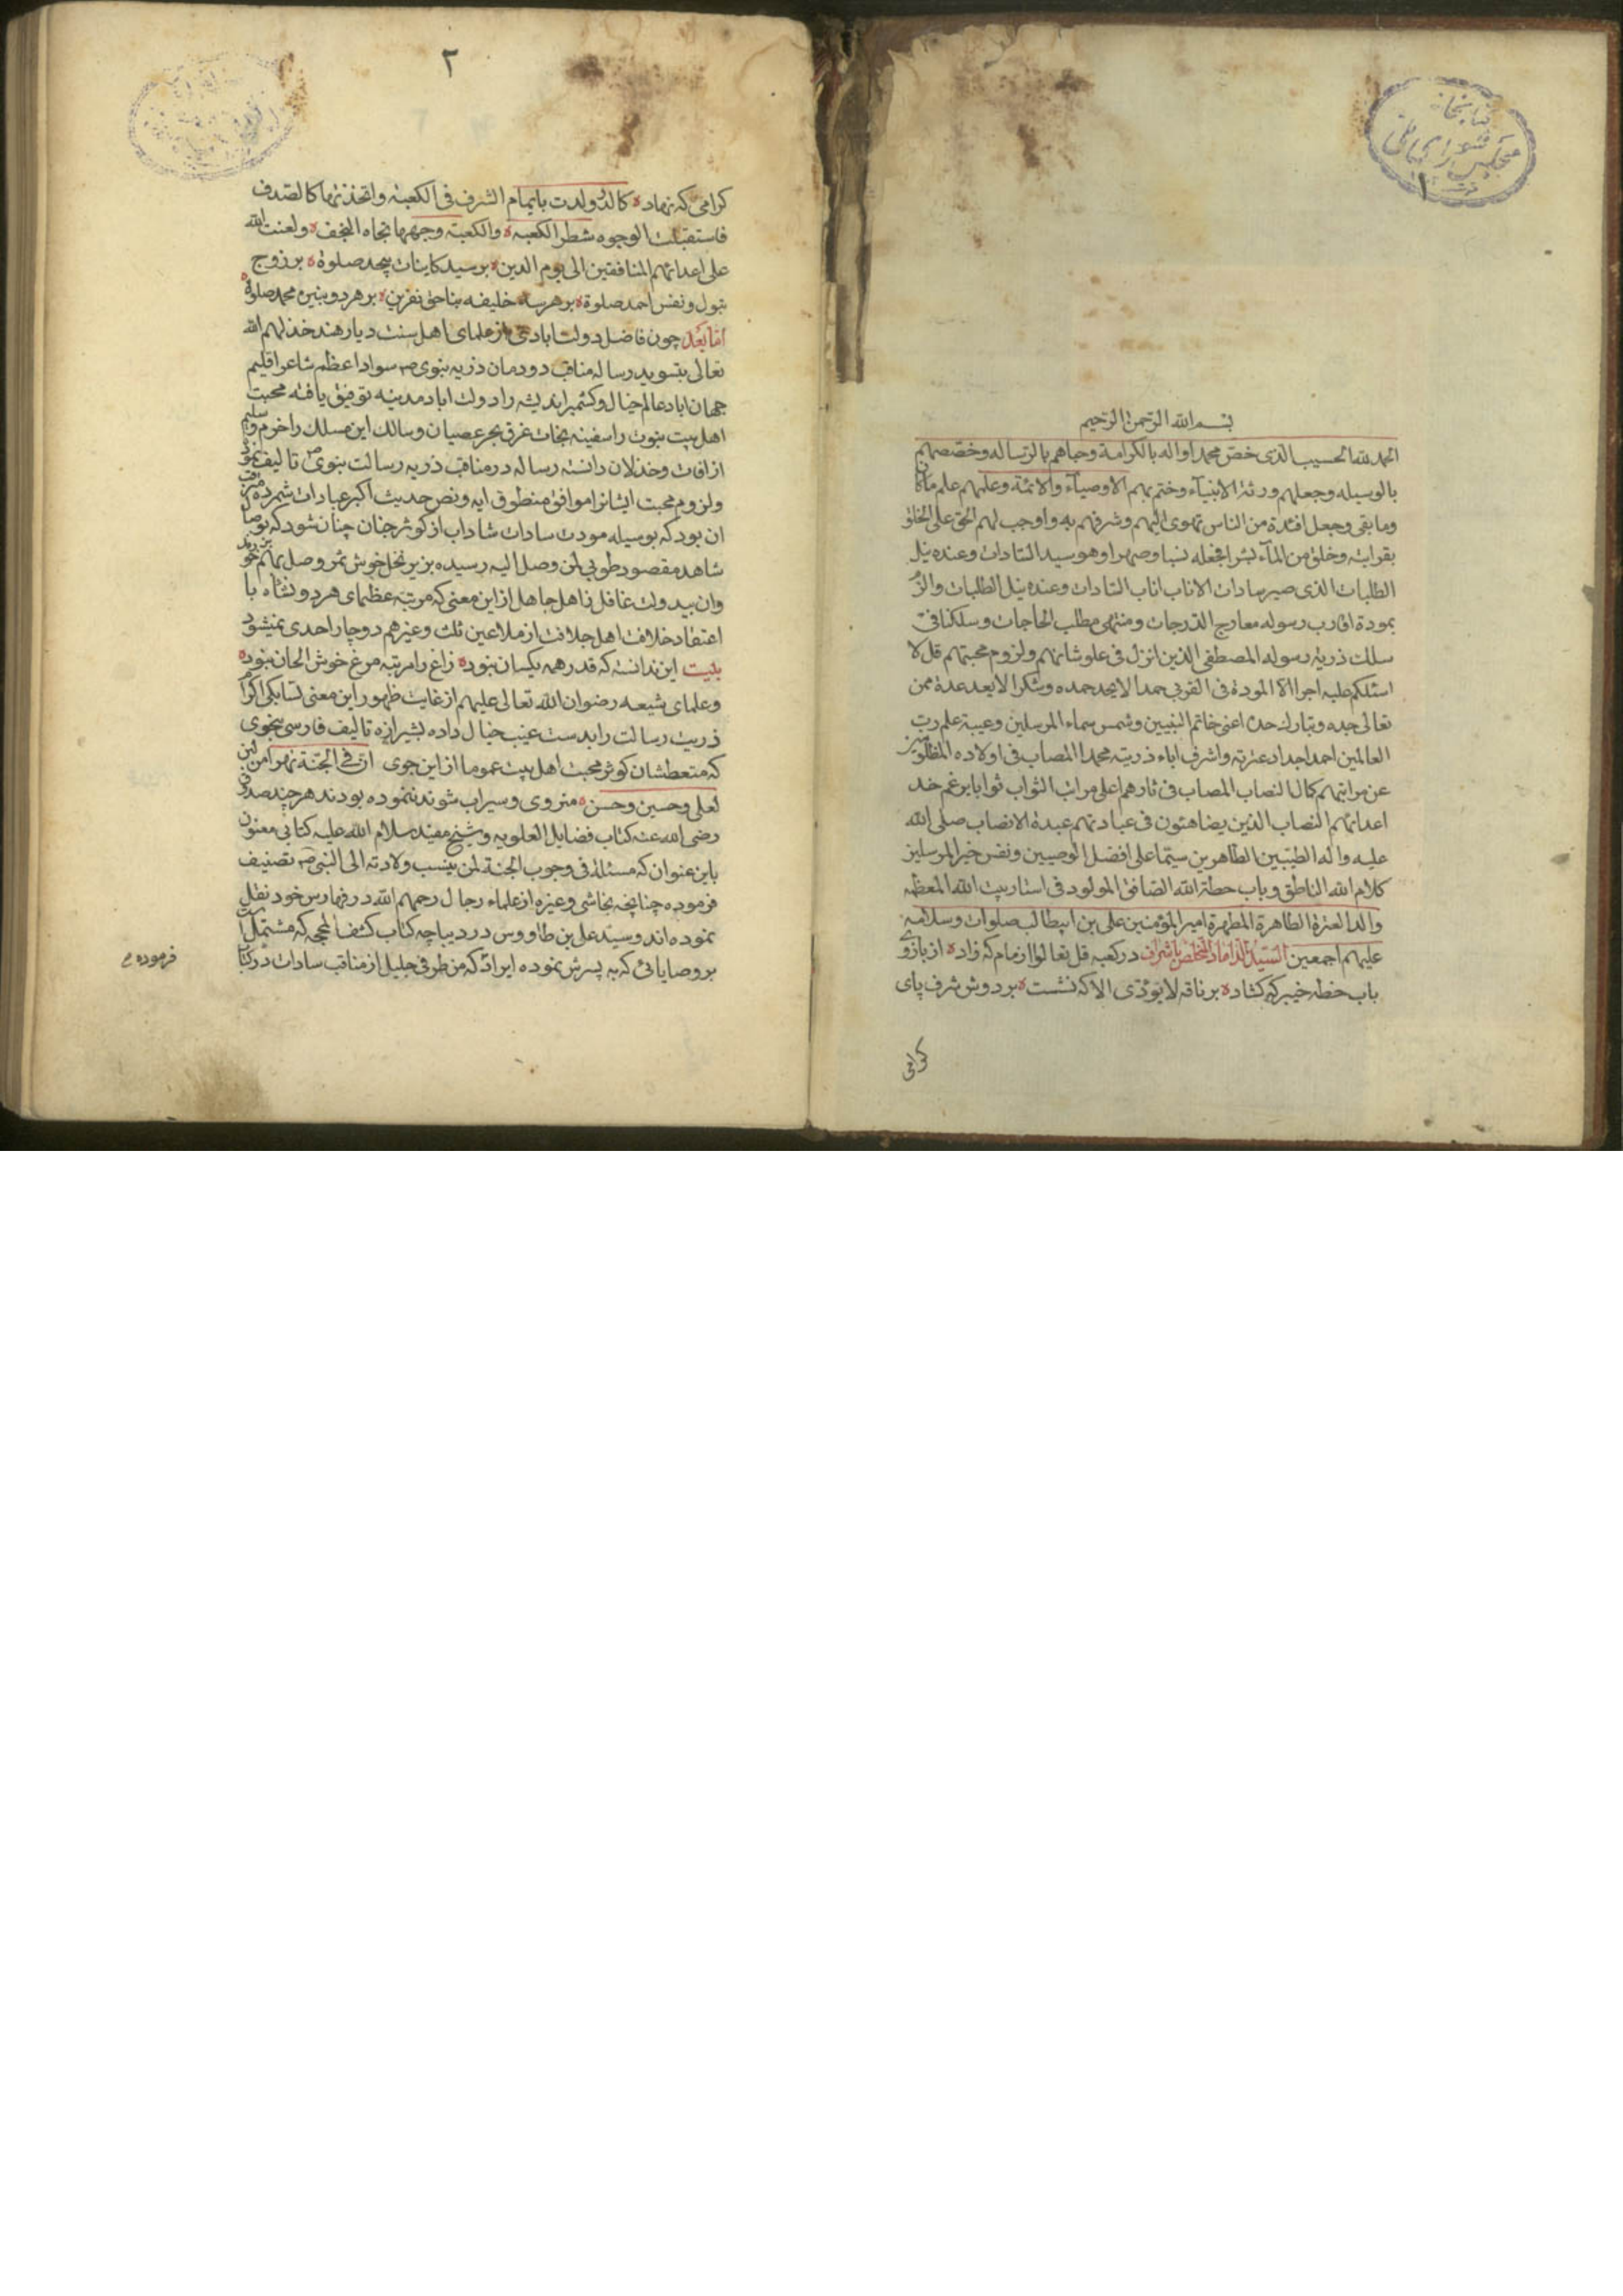 بسم الله الرحمن الرحیم
الحمد لله الحسیب الذی خص محمدا و اله بالکرامة و حباهم بالرساله و خصصهم
بالوسیله و جعلهم ورثة الانبیآء و ختم بهم الاوصیآء و الائمة و علمهم علم ماکان
و ما بقی و جعل افئدة من الناس تهوی الیهم و شرفهم به و اوجب لهم الحق علی الخلق
بقرابته و خلق من المآء بشرا فجعله نسبا و صهرا و هو سید السادات و عنده نیل
الطلبات الذی صیر سادات الاناب اناب السادات و عنده نیل الطلبات و
بمودة اقارب رسوله معارج الدرجات و منتهی مطلب الحاجات و سلکنا فی
سلک ذریة رسوله المصطفی الذین انزل فی علو شانهم و لزوم محبتهم قل لا
اسئلکم علیه اجرا الا المودة فی القربی حمدا لا یحد حمده و شکرا لا یعد عده ممن
تعالی جده و تبارک حده اعنی خاتم النبیین و شمس سماء المرسلین و عیبة علم رب
العالمین احمد اجداد عترته و اشرف اباء ذریته محمد المصاب فی اولاده المظلومین
عن مراتبهم کمال النصاب المصاب فی ثارهم اعلی مراتب الثواب ثوابا برغم خد
اعدائهم النصاب الذین یضاهئون فی عبادتهم عبدة الانصاب صلی الله
علیه و اله الطیبین الطاهرین سیما علی افضل الوصیین و نفس خیر المرسلین
کلام الله الناطق و باب حطة الله الصافی المولود فی استار بیت الله المعظمه
والد العترة الطاهرة المطهرة امیر المؤمنین علی بن ابیطالب صلوات و سلامه
علیهم اجمعین السید الداماد المتخلص باشراف در کعبه قل تعالوا از مام که زاد ه از بازوی
باب حطه خیبر که کشاد ه بر ناقه لا یؤدی الا که نشست ه بر دوش شرف پای
کرامی
۲
کرامی که نهاد ه کالدر ولدت باتمام الشرف فی الکعبة و اتخذتها کالصدف
فاستقبلت الوجوه شطر الکعبة ه و الکعبة وجهها تجاه النجف ه و لعنت الله
علی اعدائهم المنافقین الی یوم الدین ه بر سید کاینات بیحد صلوة ه بر زوج
بتول و نفس احمد صلوة ه بر هر سه خلیفه بناحق نفرین ه بر هر دو بنین محمد صلوة ه
اما بعد چون فاضل دولت ابادی از علمای اهل سنت دیار هند خذلهم الله
تعالی بتسوید رساله مناقب دودمان ذریه نبوی ص سواد اعظم شاعر اقلیم
جهان اباد عالم خیال و کشمیر اندیشه را دولت اباد مدینه توفیق یافته محبت
اهل بیت نبوت را سفینه نجات غرق بحر عصیان و سالک این مسلک را خرم و سلیم
از افات و خذلان دانسته رساله در مناقب ذریه رسالت نبوی ص تالیف نمود
و لزوم محبت ایشانرا موافق منطوق ایه و نص حدیث اکبر عبادات شمرده
ان بود که بوسیله مودت سادات شاداب از کوثر جنان چنان شود که
شاهد مقصود طوبی لمن وصل الیه رسیده بزیر نخل خوش ثمر وصل بهم
و ان بیدولت غافل ذاهل جاهل از این معنی که مرتبه عظمای هر دو نشاه با
اعتقاد خلافت اهل جلافت از ملاعین ثلث و غیرهم دوچار احدی نمیشود
بیت این ندانسته که قدر همه یکسان نبود ه زاغ را مرتبه مرغ خوش الحان نبود ه
و علمای شیعه رضوان الله تعالی علیهم از غایت ظهور این معنی
ذریت رسالت را بدست غیب خیال داده بشیرازه تالیف فارسی بنحوی
که متعطشان کوثر محبت اهل بیت عموما از این جوی ان فی الجنة نهرا من لبن
لعلی و حسین و حسن ه منروی و سیراب شوند ننموده بودند هر چند صدوق
رضی الله عنه کتاب فضایل العلویه و شیخ مفید سلام الله علیه کتابی معنون
باین عنوان که مسئلة فی وجوب الجنة لمن ینسب ولادته الی النبی ص تصنیف
فرموده چنانچه نجاشی و غیره از علماء رجال رحمهم الله در فهارس خود نقل
نموده اند و سید علی بن طاووس در دیباچه کتاب کشف المحجه که مشتمل
بر وصایائی که به پسرش نموده ایراد که من طرفی جلیل از مناقب سادات در کتاب
فرموده